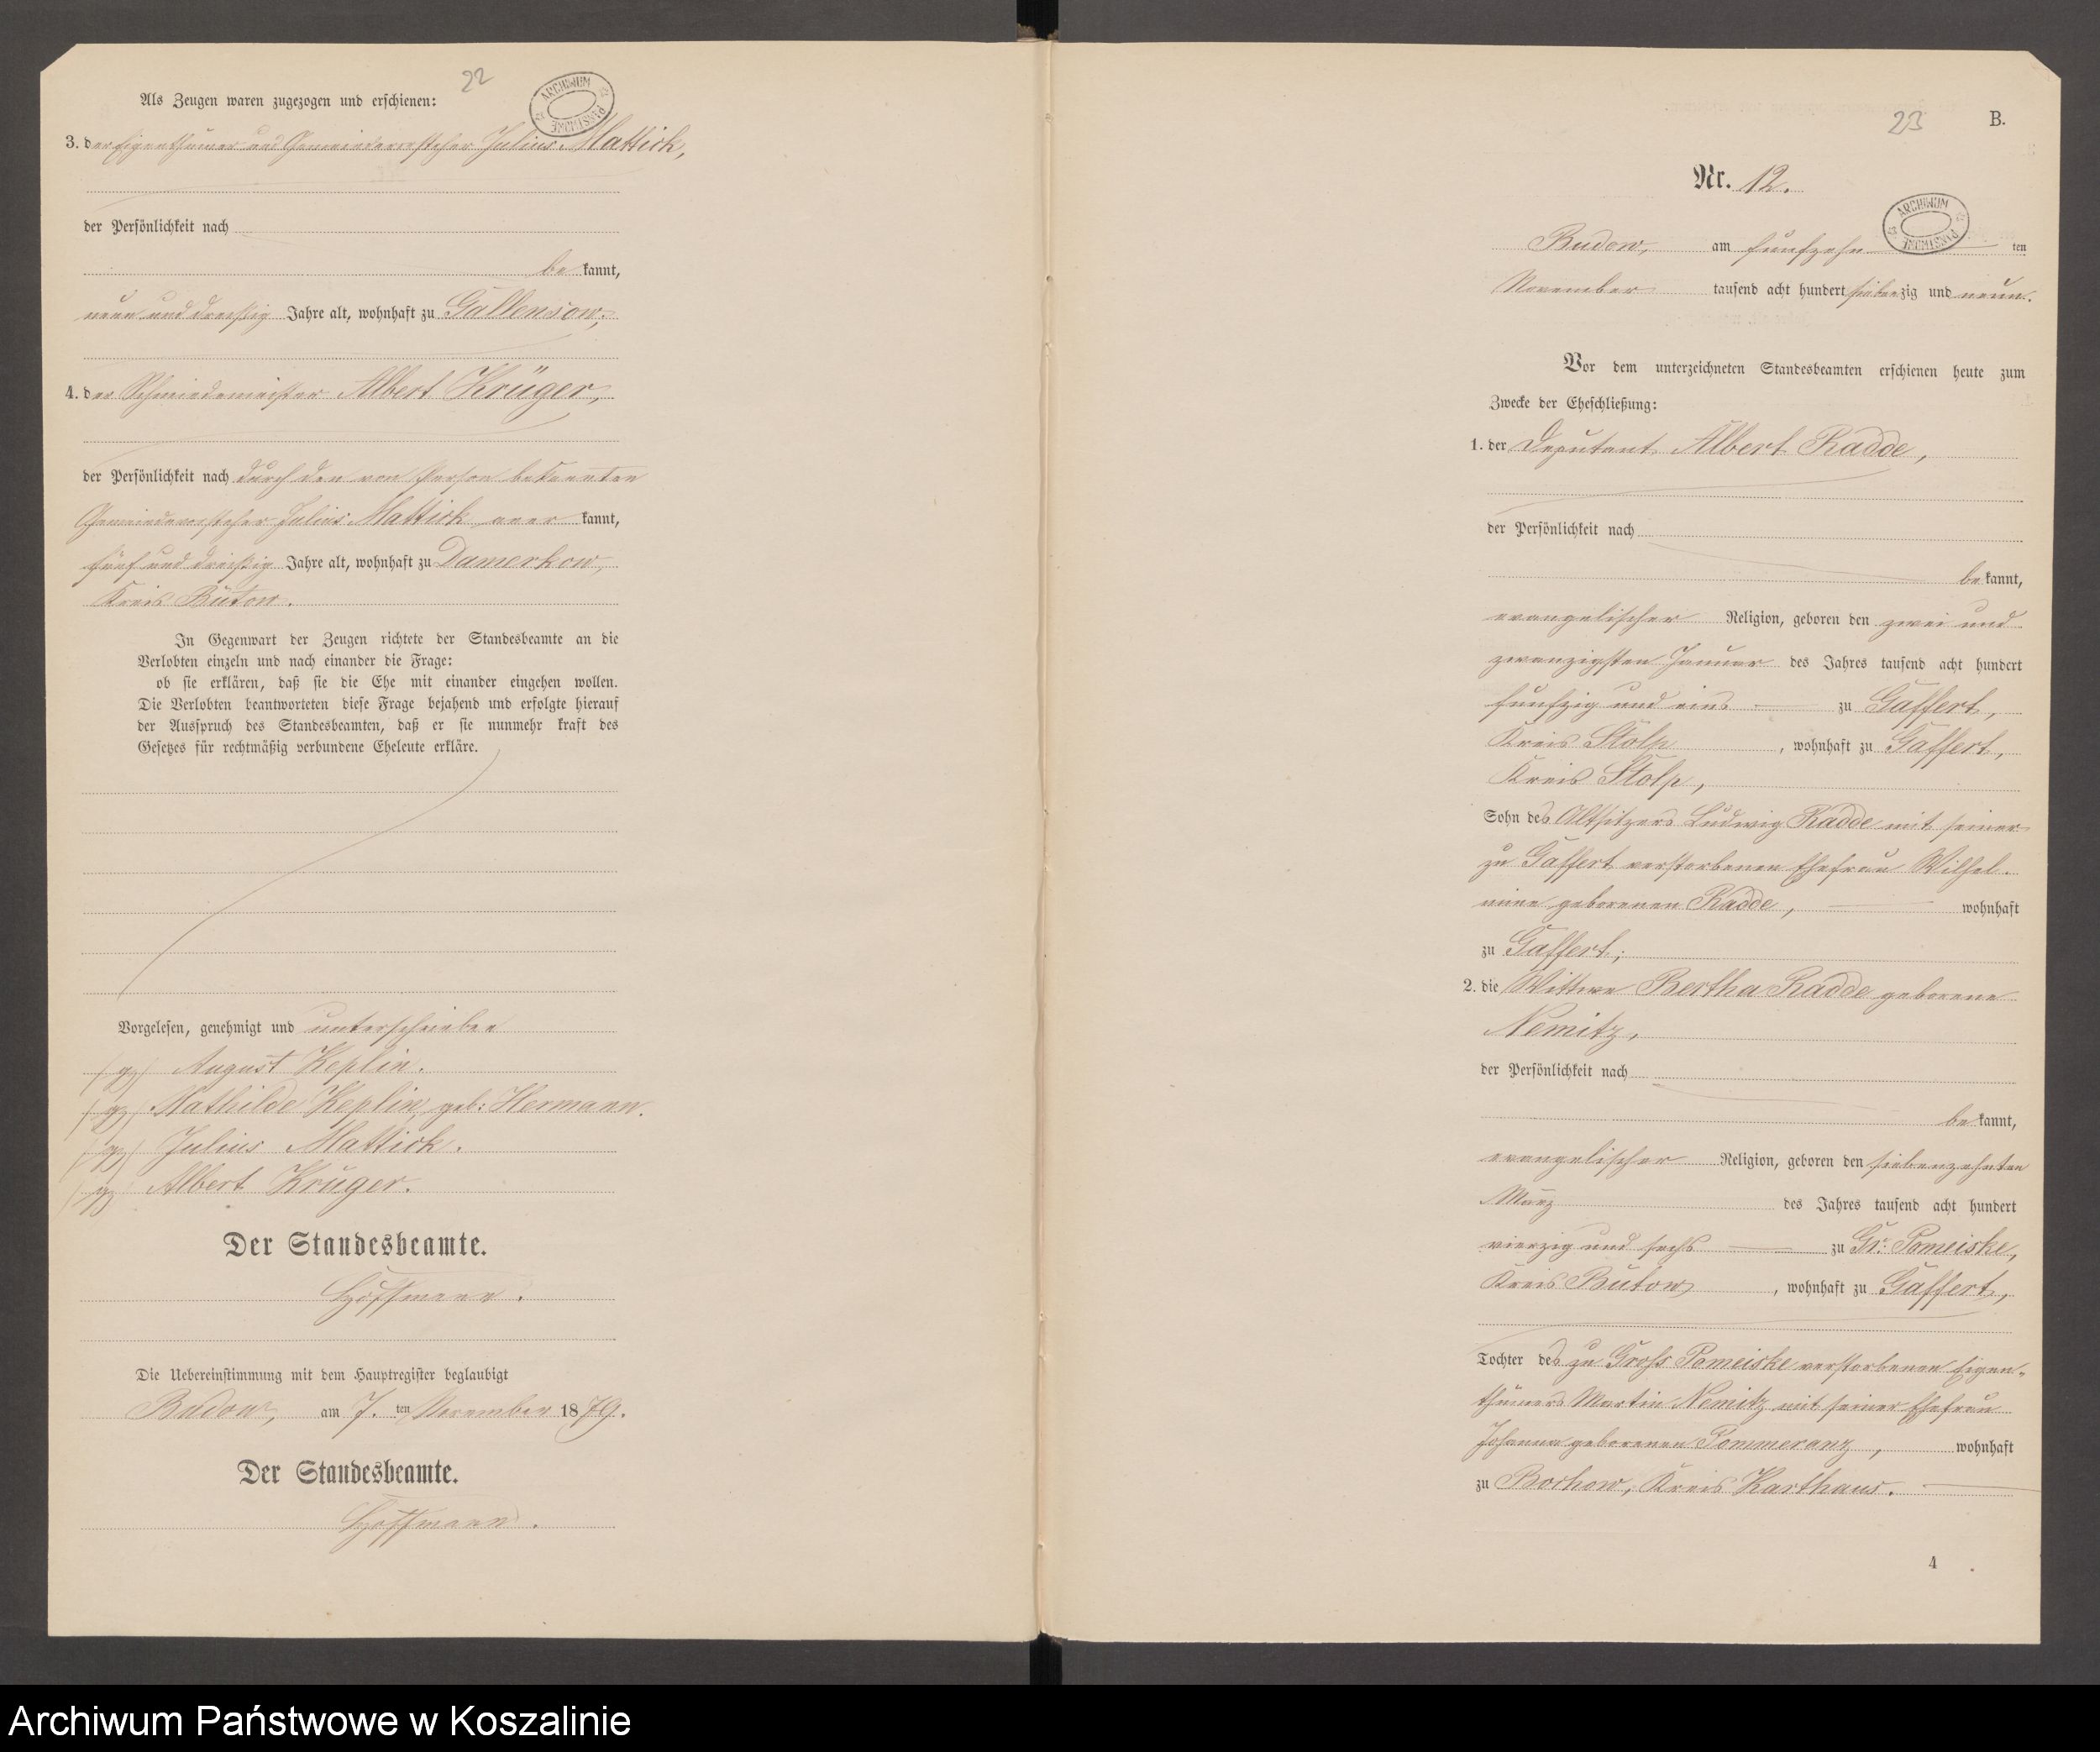 22
ARCHIWUM PAŃSTWOWE
Als Zeugen waren zugezogen und erschienen:
3. der Eigenthümer und Gemeindevorsteher Julius Mattick,
der Persönlichkeit nach
be kannt,
neun und dreißig Jahre alt, wohnhaft zu Gallensow,
4. der Schmiedemeister Albert Krüger,
der Persönlichkeit nach durch den von Person bekannten
Gemeindevorsteher Julius Mattick aner kannt,
fünf und dreißig Jahre alt, wohnhaft zu Damerkow,
Kreis Bütow.
In Gegenwart der Zeugen richtete der Standesbeamte an die
Verlobten einzeln und nach einander die Frage:
ob sie erklären, daß sie die Ehe mit einander eingehen wollen.
Die Verlobten beantworteten diese Frage bejahend und erfolgte hierauf
der Ausspruch des Standesbeamten, daß er sie nunmehr kraft des
Gesetzes für rechtmäßig verbundene Eheleute erkläre.
Vorgelesen, genehmigt und unterschrieben
(gz) August Keplin.
(gz) Mathilde Keplin, geb: Hermann.
(gz) Julius Mattick.
(gz) Albert Krüger.
Der Standesbeamte.
Hoffmann.
Die Uebereinstimmung mit dem Hauptregister beglaubigt
Budow, am 7. ten November 1879.
Der Standesbeamte.
Hoffmann.
23
B.
Nr. 12.
ARCHIWUM PAŃSTWOWE
Budow, am fünfzehn ten
November tausend acht hundert siebenzig und neun.
Vor dem unterzeichneten Standesbeamten erschienen heute zum
Zwecke der Eheschließung:
1. der Deputant Albert Radde,
der Persönlichkeit nach
be kannt,
evangelischer Religion, geboren den zwei und
zwanzigsten Januar des Jahres tausend acht hundert
funfzig und eins zu Gaffert,
Kreis Stolp, wohnhaft zu Gaffert,
Kreis Stolp,
Sohn des Altsitzers Ludwig Radde mit seiner
zu Gaffert verstorbenen Ehefrau Wilhel-
mine geborenen Radde, wohnhaft
zu Gaffert;
2. die Wittwe Bertha Radde geborene
Nemitz,
der Persönlichkeit nach
be kannt,
evangelischer Religion, geboren den siebenzehnten
März des Jahres tausend acht hundert
vierzig und sechs zu Gr. Pomeiske,
Kreis Bütow, wohnhaft zu Gaffert,
Tochter des zu Gross Pomeiske verstorbenen Eigen-
thümers Martin Nemitz mit seiner Ehefrau
Johanna geborenen Pommeranz, wohnhaft
zu Borkow, Kreis Karthaus.
4
Archiwum Państwowe w Koszalinie